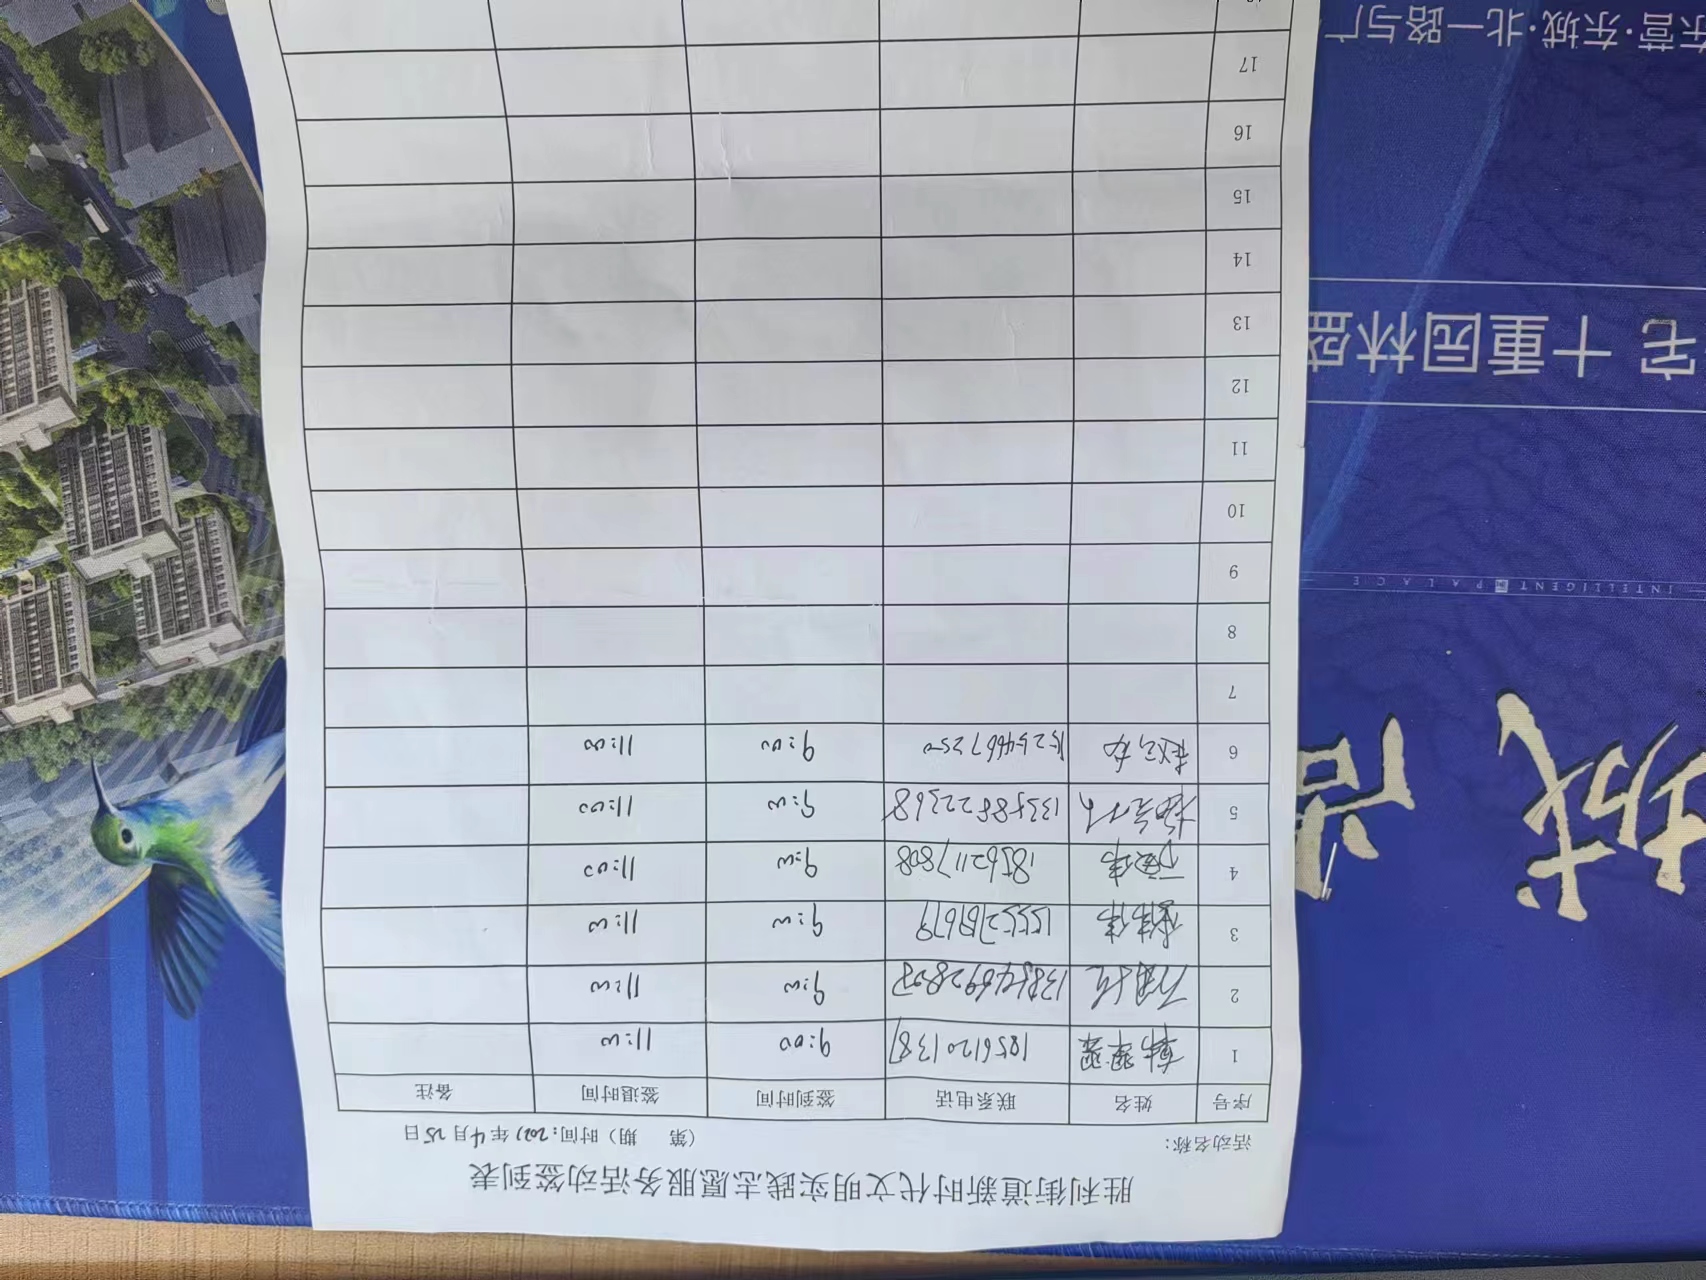 胜利街道新时代文明实践志愿服务活动签到表
活动名称： （第 期）时间：2021年4月25日
序号 姓名 联系电话 签到时间 签退时间 备注
1 韩翠翠 18561201387 9:00 11:00
2 13854692808 9:00 11:00
3 9:00 11:00
4 18562117808 9:00 11:00
5 9:00 11:00
6 15254667250 9:00 11:00
7
8
9
10
11
12
13
14
15
16
17
东营·东城·北一路与广
宅 十重园林盛
INTELLIGENT PALACE
城